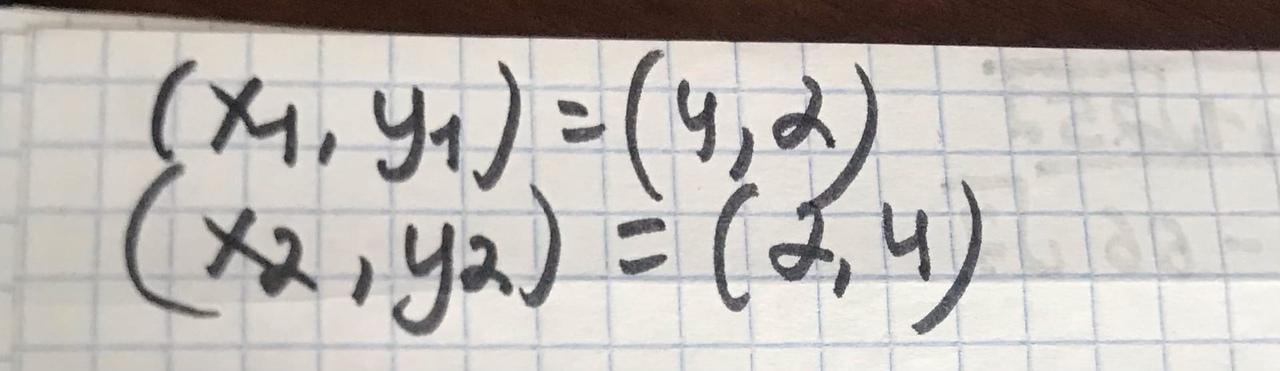 (x1, y1) = (4, 2)
(x2, y2) = (2, 4)